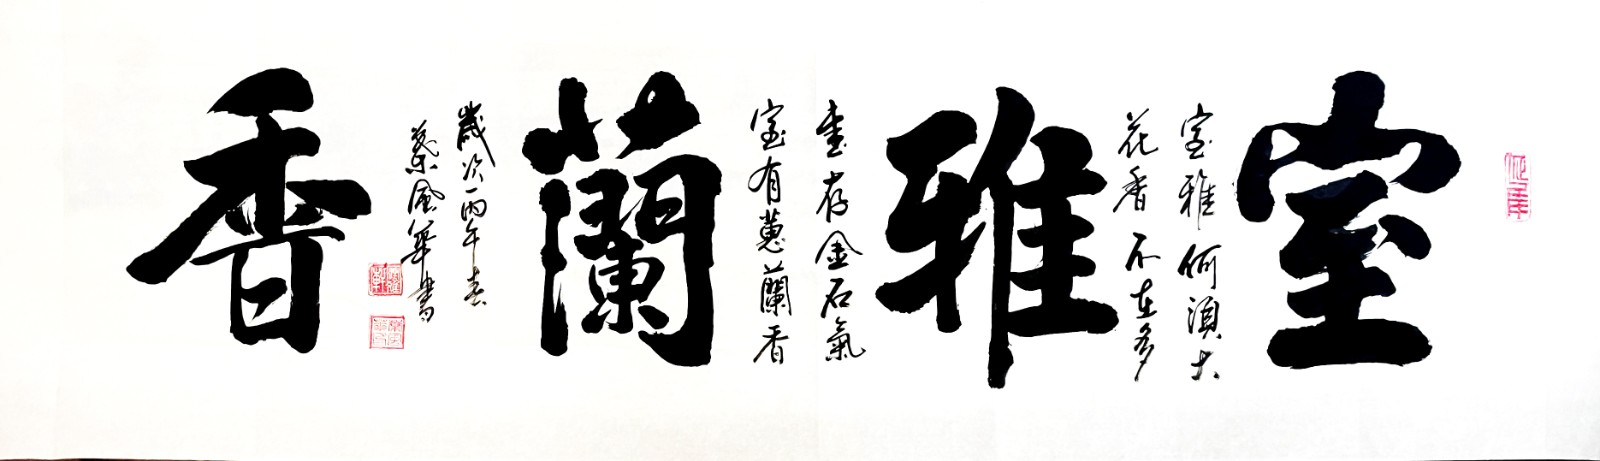 室
室雅何須大
花香不在多
雅
書存金石氣
室有蕙蘭香
蘭
歲次丙午春
蔡風華書
香